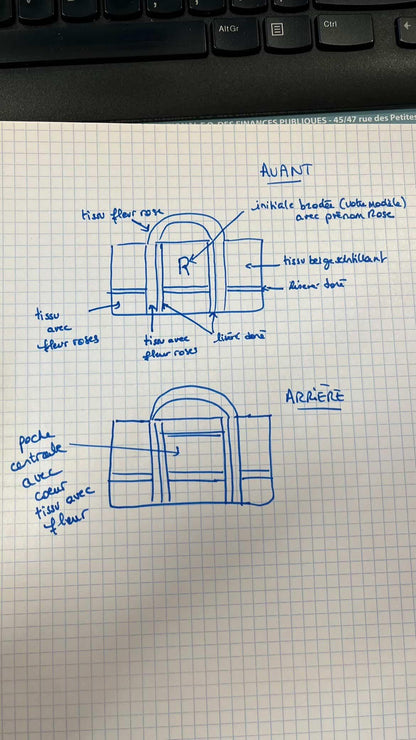 AltGr
Ctrl
DES FINANCES PUBLIQUES - 45/47 rue des Petites
AVANT
tissu fleur rose
initiale brodée (votre modèle)
avec prénom Rose
R
tissu beige scintillant
liseré doré
tissu
avec
fleur roses
tissu avec
fleur roses
liseré doré
ARRIÈRE
poche
centrale
avec
coeur
tissu avec
fleur